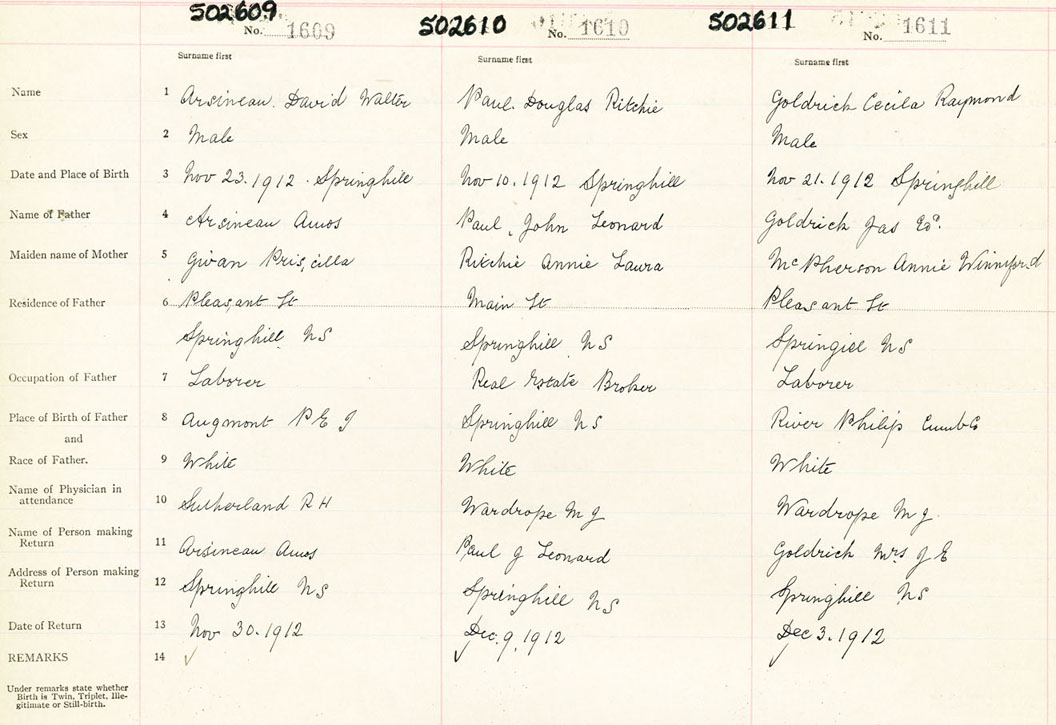 502609 No. 1609 502610 No. 1610 502611 No. 1611
Surname first Surname first Surname first
Name 1 Arsineau. David Walter Paul. Douglas Ritchie Goldrick Cecila Raymond
Sex 2 Male Male Male
Date and Place of Birth 3 Nov 23.1912. Springhill Nov 10.1912 Springhill Nov 21.1912 Springhill
Name of Father 4 Arsineau Amos Paul, John Leonard Goldrick Jas Ed.
Maiden name of Mother 5 Givan Priscilla Ritchie Annie Laura McPherson Annie Winniford
Residence of Father 6 Pleasant St Main St Pleasant St
Springhill NS Springhill NS Springiell NS
Occupation of Father 7 Laborer Real Estate Broker Laborer
Place of Birth of Father 8 Augmont P E I Springhill NS River Philip Cumb Co
and
Race of Father. 9 White White White
Name of Physician in
attendance 10 Sutherland R H Wardrope M J Wardrope M J
Name of Person making
Return 11 Arsineau Amos Paul J Leonard Goldrick Mrs J E
Address of Person making
Return 12 Springhill NS Springhill NS Springhill NS
Date of Return 13 Nov 30.1912 Dec. 9, 1912 Dec 3.1912
REMARKS 14 ✓
Under remarks state whether
Birth is Twin, Triplet, Ille-
gitimate or Still-birth.